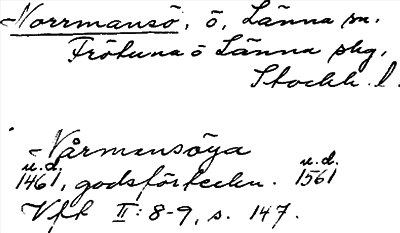 Norrmansö, ö, Länna sn.
Frötuna o Länna skg,
Stockh. l.
Vårmansöya
u.d. u.d.
1461, godsförteckn. 1561
Vfk II: 8-9, s. 147.